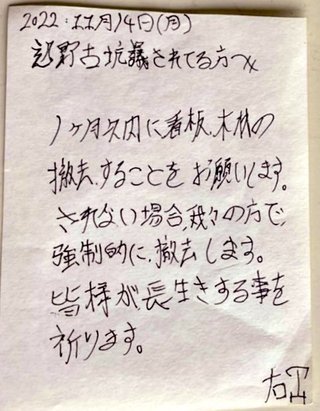 2022.11月14日(月)
辺野古坑議されてる方へ
1ヶ月以内に看板、木材の
撤去、することをお願いします。
されない場合、我々の方で、
強制的に、撤去します。
皆様が長生きする事を
祈ります。